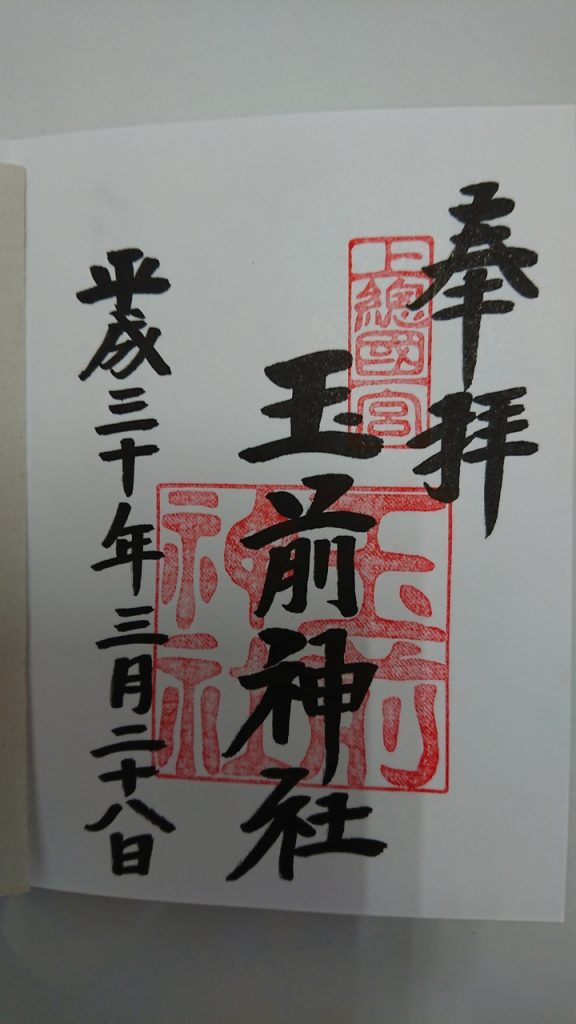 奉拝
上總國一宮
玉前神社
玉前神社
平成三十年三月二十八日